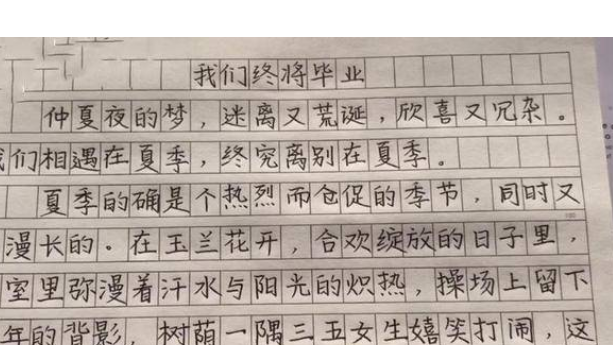 我们终将毕业
仲夏夜的梦，迷离又荒诞，欣喜又冗杂。
们相遇在夏季，终究离别在夏季。
夏季的确是个热烈而仓促的季节，同时又
漫长的。在玉兰花开，合欢绽放的日子里，
室里弥漫着汗水与阳光的炽热，操场上留下
年的背影，树荫一隅三五女生嬉笑打闹，这